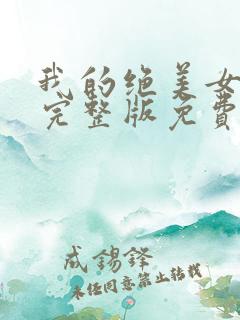 我的绝美女
完整版免费
成锡锋
未经同意禁止转载